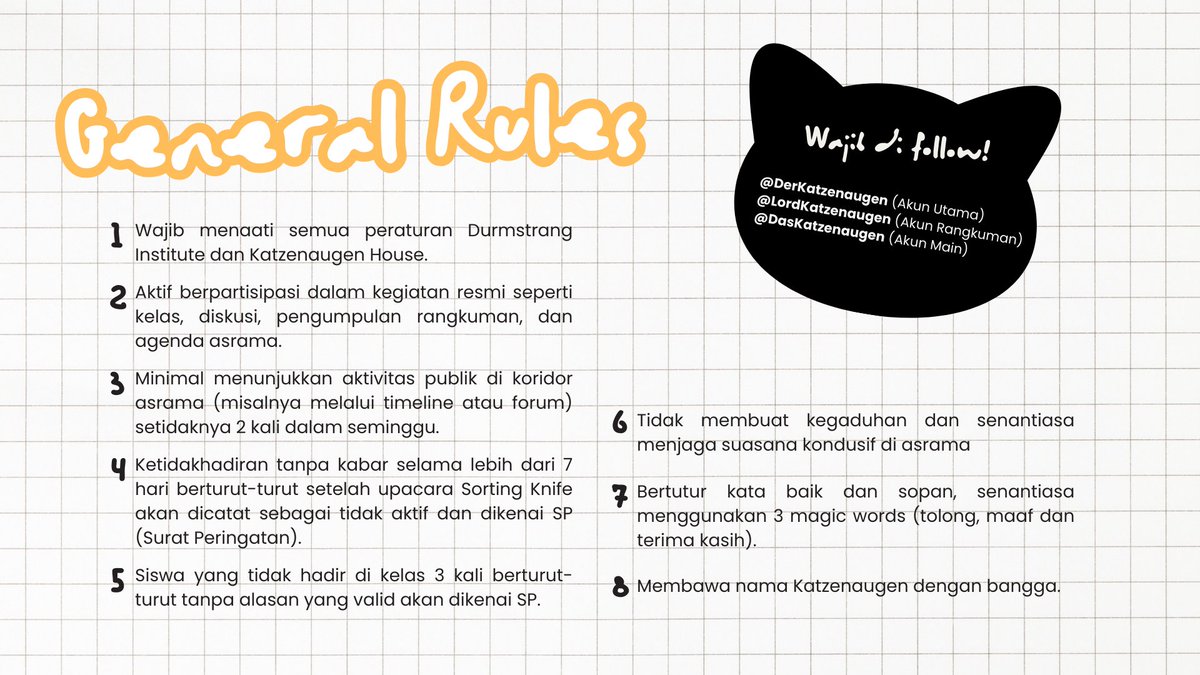 General Rules
1 Wajib menaati semua peraturan Durmstrang
Institute dan Katzenaugen House.
2 Aktif berpartisipasi dalam kegiatan resmi seperti
kelas, diskusi, pengumpulan rangkuman, dan
agenda asrama.
3 Minimal menunjukkan aktivitas publik di koridor
asrama (misalnya melalui timeline atau forum)
setidaknya 2 kali dalam seminggu.
4 Ketidakhadiran tanpa kabar selama lebih dari 7
hari berturut-turut setelah upacara Sorting Knife
akan dicatat sebagai tidak aktif dan dikenai SP
(Surat Peringatan).
5 Siswa yang tidak hadir di kelas 3 kali berturut-
turut tanpa alasan yang valid akan dikenai SP.
Wajib di follow!
@DerKatzenaugen (Akun Utama)
@LordKatzenaugen (Akun Rangkuman)
@DasKatzenaugen (Akun Main)
6 Tidak membuat kegaduhan dan senantiasa
menjaga suasana kondusif di asrama
7 Bertutur kata baik dan sopan, senantiasa
menggunakan 3 magic words (tolong, maaf dan
terima kasih).
8 Membawa nama Katzenaugen dengan bangga.